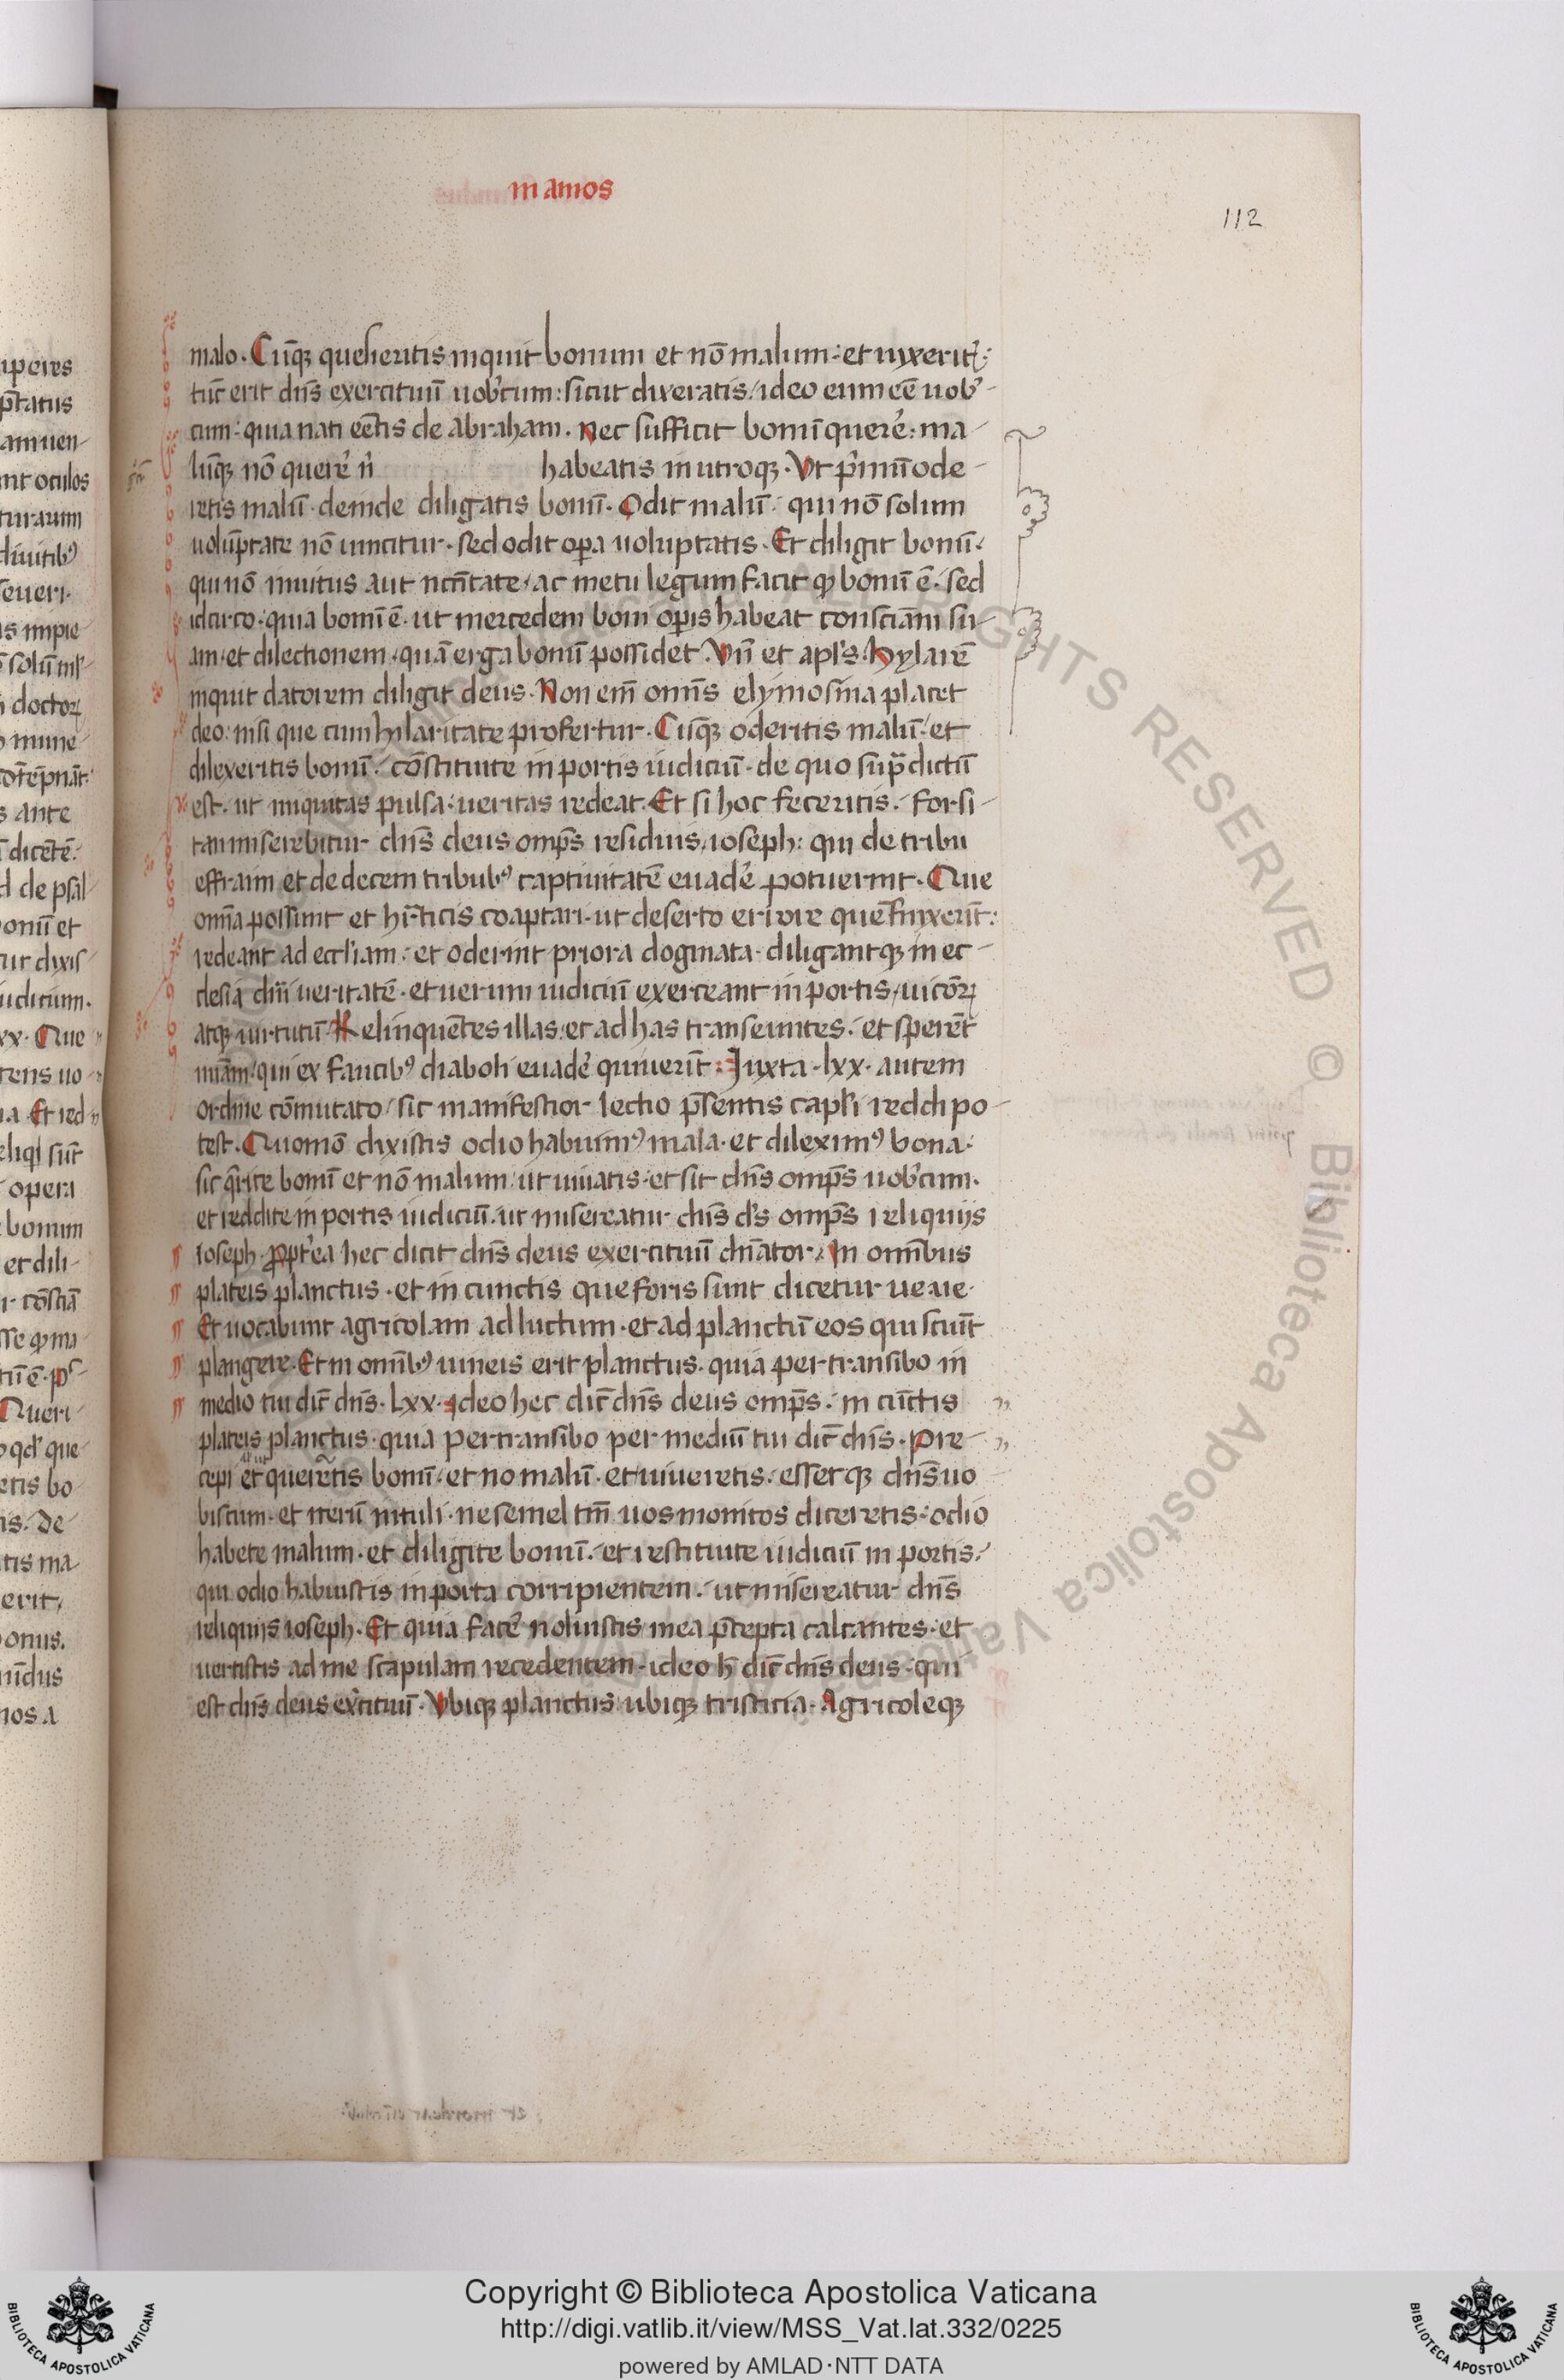 in amos
112
malo. Cūq; quesieritis inquit bonum et nō malum: et uixeritꝭ:
tūc erit dn̄s exercituū uob̓cum: sicut dixeratis, ideo eum eē uob̓-
cum: quia nati eētis de abraham. Nec sufficit bonū querē: ma-
lūq; nō querē n̄ habeatis in utroq;. Vt p̓mū ode-
retis malū. deinde diligatis bonū. Odit malū. qui nō solum
uolūptate nō uincitur. sed odit oꝑa uoluptatis. Et diligit bonū.
qui nō inuitus aut nc̄ntate, ac metu legum facit qꝫ bonū ē. sed
idcirco. quia bonū ē. ut mercedem boni oꝑis habeat consciām su-
am. et dilectionem. quā erga bonū possidet. Vn̄ et apl̓s. Hylarē
inquit datorem diligit deus. Non em̄ omīs elymosina placet
deo. nisi que cum hilaritate profertur. Cūq; oderitis malū. et
dilexeritis bonū. cōstituite in portis iudiciū. de quo sup̄ dictū
est. ut iniquitas pulsa. ueritas redeat. Et si hoc feceritis. forsi-
tan miserebitur dn̄s deus omp̄s residuis, ioseph: qui de tribu
effraim et de decem tribubꝰ captiuitatē euadē potuerint. Que
omīa possunt et hr̄ticis coaptari. ut deserto errore quē finxerūt:
redeant ad eccl̓iam: et oderint priora dogmata. diligantq; in ec-
clesia dn̄i ueritatē. et uerum iudiciū exerceant in portis, uicōꝝ
atq; uirtutū. Relinquētes illas, et ad has transeuntes. et sperēt
ueniam, qui ex faucibꝰ diaboli euadē quiuerūt. Juxta .lxx. autem
ordine cōmutato, sic manifestior lectio p̄sentis capl̓i reddi po-
test. Quomō dixistis odio habuimꝰ mala. et dileximꝰ bona.
sic q̄rite bonū et nō malum. ut uiuatis. et sit dn̄s omp̄s uob̓cum.
et reddite in portis iudiciū. ut misereatur dn̄s d̄s omp̄s reliquijs
ioseph. Ꝓpt̓ea hec dicit dn̄s deus exercituū dn̄ator. In omībus
plateis planctus. et in cunctis que foris sunt dicetur ue ue.
Et uocabunt agricolam ad luctum. et ad planctū eos qui sciūt
plangere. Et in omībꝰ uineis erit planctus. quia pertransibo in
medio tui dic̄ dn̄s. lxx. Ideo hec dic̄ dn̄s deus omp̄s. in cūctis
plateis planctus. quia pertransibo per mediū tui dic̄ dn̄s. Pre-
cepi et querētis bonū. et no malū. et uiueretis. essetq; dn̄s uo
biscum. et iterū intuli. ne semel tm̄ uos monitos diceretis. odio
habete malum. et diligite bonū. et restituite iudiciū in portis.
qui odio habuistis in porta corripientem. ut misereatur dn̄s
reliquijs ioseph. Et quia facē noluistis mea p̄cepta calcantes. et
uertistis ad me scapulam recedentem. ideo h̄ dic̄ dn̄s deus. qui
est dn̄s deus ex̓cituū. Vbiq; planctus ubiq; tristicia. Agricoleq;
Copyright © Biblioteca Apostolica Vaticana
http://digi.vatlib.it/view/MSS_Vat.lat.332/0225
powered by AMLAD·NTT DATA